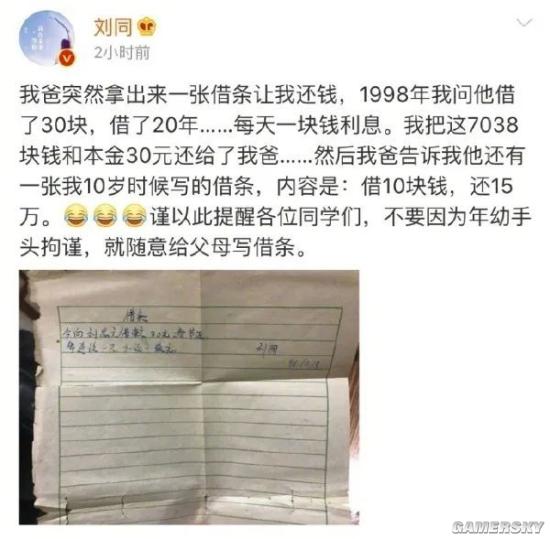 刘同
2小时前
我爸突然拿出来一张借条让我还钱，1998年我问他借
了30块，借了20年……每天一块钱利息。我把这7038
块钱和本金30元还给了我爸……然后我爸告诉我他还有
一张我10岁时候写的借条，内容是：借10块钱，还15
万。😂😂😂谨以此提醒各位同学们，不要因为年幼手
头拘谨，就随意给父母写借条。
借款
30元
刘同
GAMERSKY